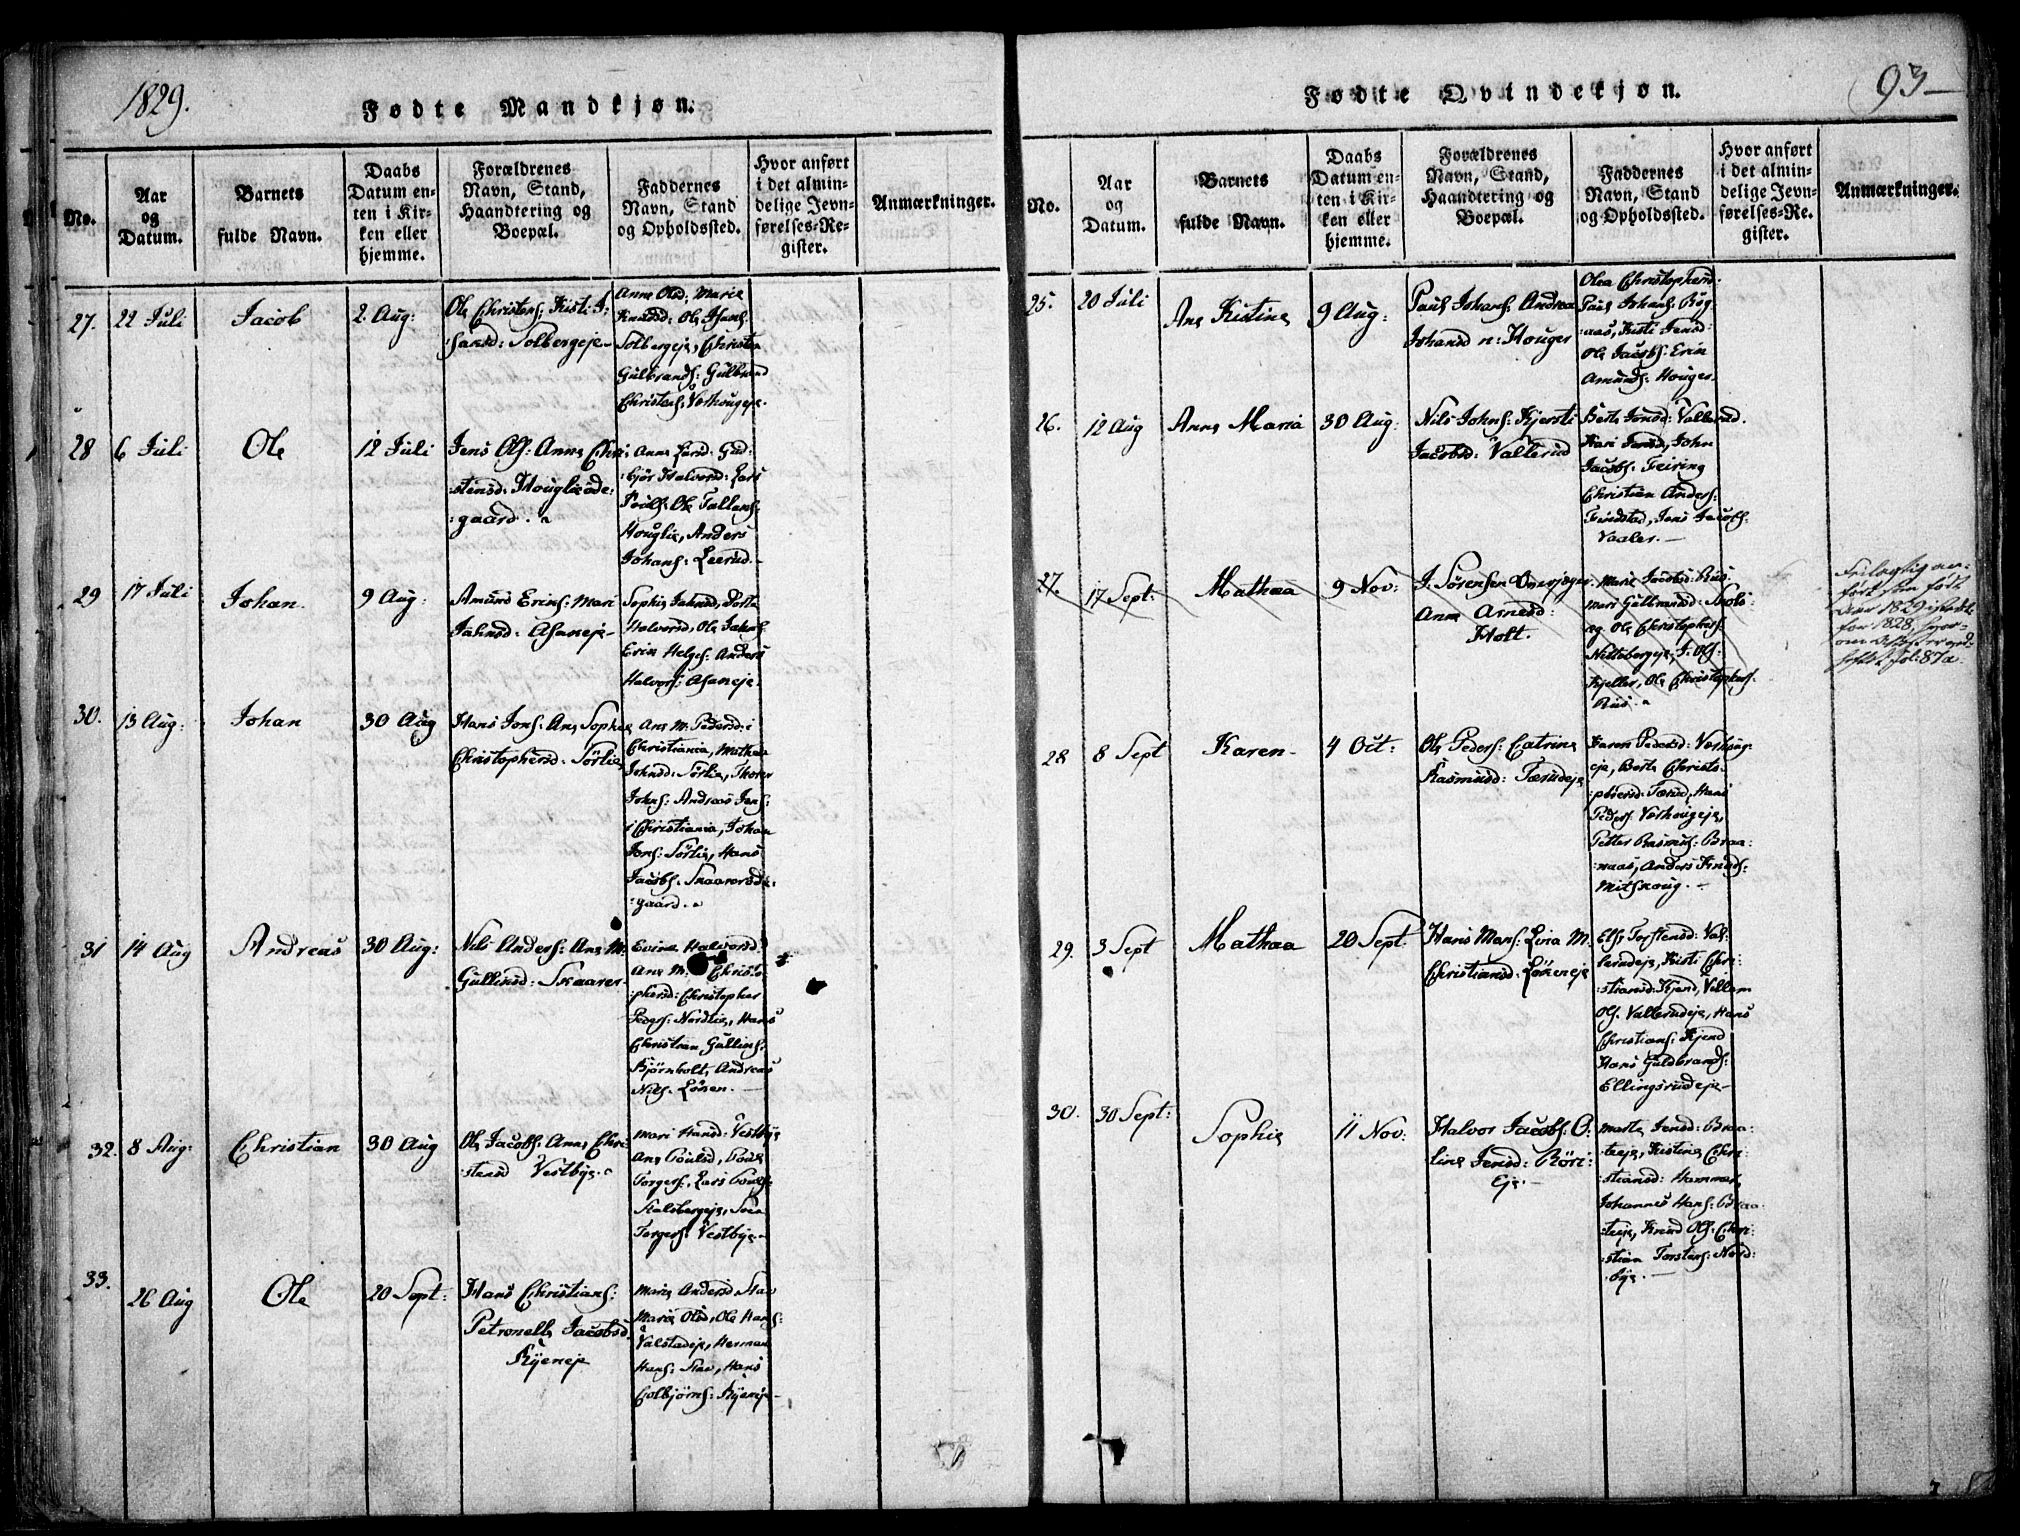 1829.
Fødte Mandkjøn.
No.
Aar
og
Datum.
Barnets
fulde Navn.
Daabs
Datum en-
ten i Kir-
ken eller
hjemme.
Forældrenes
Navn, Stand,
Haandtering og
Boepæl.
Faddernes
Navn, Stand
og Opholdssted.
Hvor anført
i det almin-
delige Jevn-
førelses-Re-
gister.
Anmærkninger.
27.
22 Juli
Jacob
2. Aug:
Ole Christens: Kisti I:
sansd: Solbergeje
Anne Olsd, Marie
Knudsd: Ole
Solbergeje, Christen
Gulbrands: Gulbrand
Christens, Vorhougeje.
28
6 Juli
Ole
12 Juli
Jens Ols: Anne Chri:
:stensd: Houglieøde:
:gaard.
Anne Larsd: Gud:
:bjør Halvorsd: Lars
Pouls: Ole Tallans:
Houglie, Anders
Johans: Leerud.
29
17 Juli
Johan
9 Aug:
Amund Erins: Mari
Jahnsd: Asaneje
Sophie Jahnsd, Dorte
Halvorsd, Ole Jahns:
Erin Helges: Anders
Halvors: Asaneje.
30.
13 Aug:
Johan
30 Aug
Hans Jons: Ane Sophie
Christophersd: Sørlie
Ane M: Pedersd: i
Christiania, Mathea
Johnsd: Sørlie, Thorer
Johns: Andreas Jens:
i Christiania, Johan
Jons: Sørlie, Hans
Jacobs: Skaarerøde:
:gaard.
31
14 Aug
Andreas
30 Aug:
Nils Anders: Ane M:
Gullinsd: Skaarer
Evine Halvorsd:
Ane M: Christo
:phersd: Christopher
Peders: Nordlie, Hans
Christian Gullins:
Bjørnholt, Andreas
Nils: Lønen.
32.
8 Aug:
Christian
30 Aug
Ole Jacobs: Anne Chri:
:stensd Vestbye.
Mari Hansd: Vestbye
Ane Poulsd, Poul
Torgers: Lars Pouls:
Stalsbergeje, Sven
Torgers: Vestbye
33.
26 Aug
Ole
20 Sept:
Hans Christians:
Petronelle Jacobsd.
Ryeneje
Marie Andersd Stav
Marie Olsd, Ole Hans:
Valstadeje, Herman
Hans: Stav, Hans
Colbjørns: Ryeneje
Fødte Qvindekjøn.
93
No.
Aar
og
Datum.
Barnets
fulde Navn.
Daabs
Datum en-
ten i Kir-
ken eller
hjemme.
Forældrenes
Navn, Stand,
Haandtering og
Boepæl.
Faddernes
Navn, Stand
og Opholdssted.
Hvor anført
i det almin-
delige Jevn-
førelses-Re-
gister.
Anmærkninger.
25.
20 Juli
Ane Kistine
9 Aug:
Paul Johans: Andrea
Johansd n: Houger
Olea Christophersd:
Paul Johans: Bøg
:aas, Kisti Jensd:
Ole Jacobs: Erin
Amunds: Houger.
26.
12 Aug
Anne Maria
30 Aug:
Nils Johns: Kjersti
Jacobsd: Vallerud
Berte Jensd: Vallerud.
Kari Jensd, John
Jacobs: Feiring
Christian Anders:
Fundstad, Jens Jacobs:
Vaaler.
27.
17 Sept:
Mathea
9 Nov:
J: Sørensen
Anne Arnesd:
Holt.
Marie Jacobsd: Ruus
Mari Gulbrandsd: Skols:
:eg Ole Christophers:
Nittebergeje, J: Ols:
Kjeller, Ole Christophers:
Ruus.
Feilagtig an-
ført som født
Aar 1829 istedet
for 1828,
fol: 87a.
28
8 Sept
Karen
4 Oct:
Ole Peders: Catrine
Rasmusd: Tærudeje
Karen Pedersd: Vorhoug:
eje, Berte Christo:
:phersd: Tærud, Hans
Peders: Vorhougeje,
Petter Rasmus: Braa:
:naas, Anders Knuds:
Mitskoug.
29.
3 Sept
Mathea
20 Sept:
Hans Mons: Lina M.
Christiansd: Løkeneje
Else Torstensd: Val:
lerudeje, Kisti Chri:
:stiansd: Kjend, Villem
Ols. Vallerudeje, Hans
Christians: Kjend
Hans Guldbrands:
Ellingsrudeje
30.
30 Sept:
Sophie
11 Nov:
Halvor Jacobs: O:
line Jensd: Röri:
Eje.
Marte Jensd: Braa:
teeje, Kistine Chri:
:stiansd: Hammer,
Johannes Hans: Braa:
:teeje, Knud Ols: Chri:
stian Torstens: Nord
:bye.